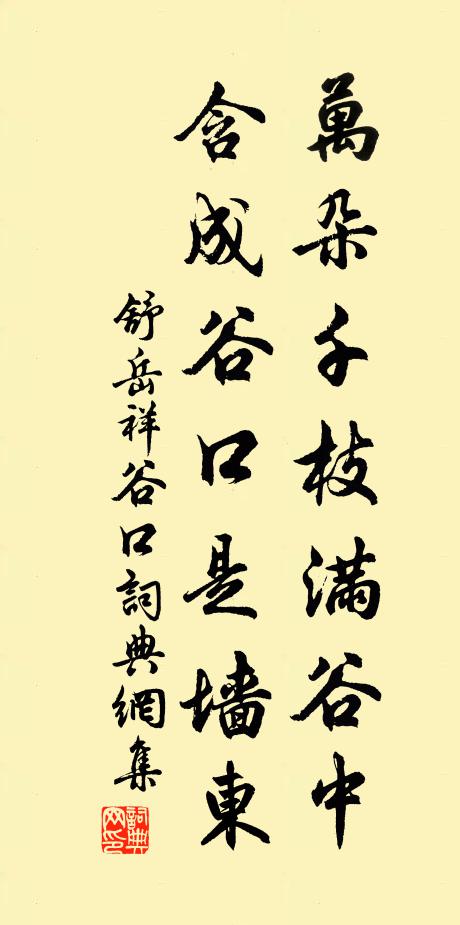 萬朵千枝滿谷中
含成谷口是墙東
舒岳祥谷口詞典網集
詞典网印